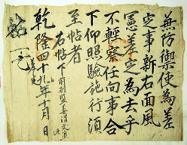 兼防禦使為差
定事新右面風
憲差定為去乎
不輕察任向事合
下仰照驗施行須
至帖者
右帖前別監姜
乾隆四十九年十月 日